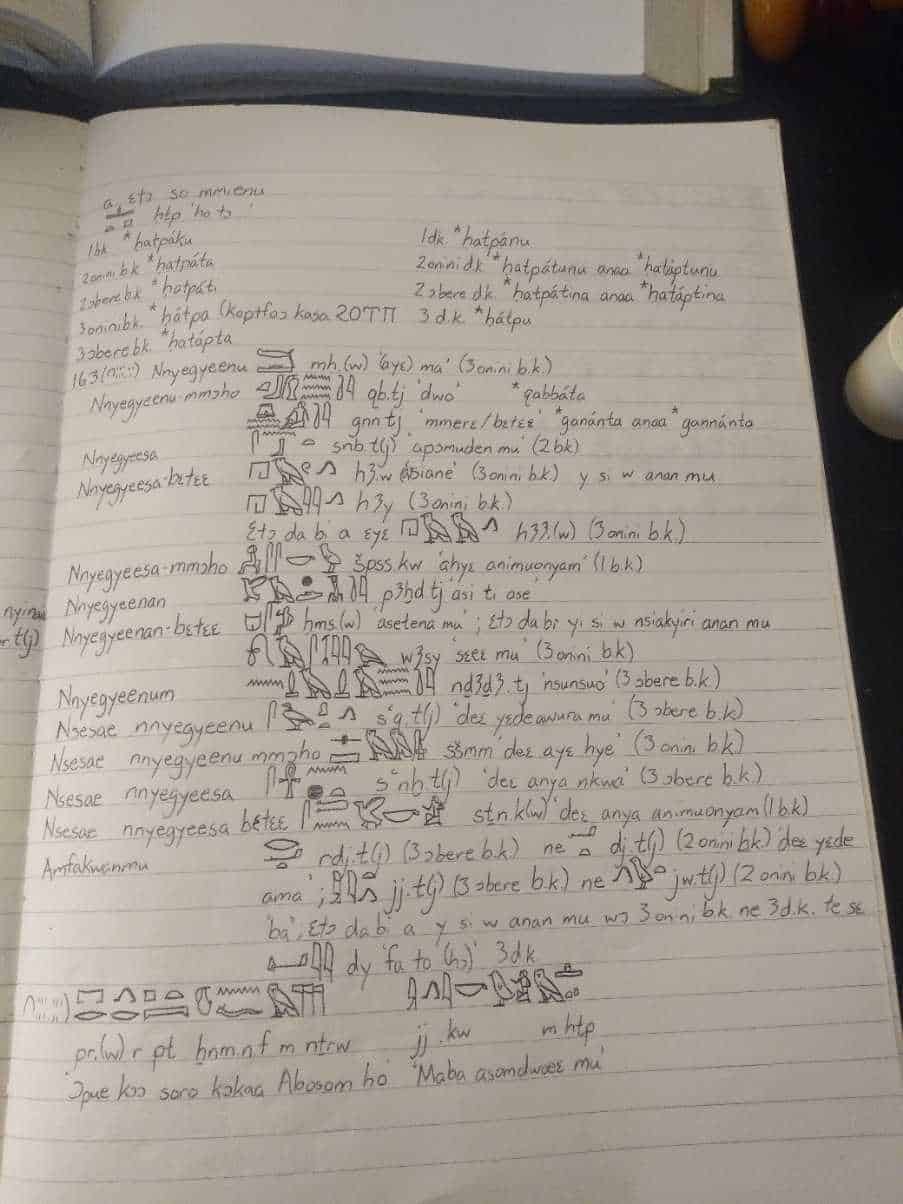 a, ɛtɔ so mmienu
ḥtp 'hɔ tɔ'
1bk *ḥatpáku 1dk. *ḥatpánu
2onini bk *ḥatpáta 2onini dk *ḥatpátunu anaa *ḥatáptunu
2ɔbere bk. *ḥatpáti 2ɔbere dk. *ḥatpátina anaa *ḥatáptina
3onini bk. *ḥátpa (kɔptfoɔ kasa ϨΟΤΠ 3 d.k. *ḥátpu
3ɔbere bk. *ḥatápta
163 Nnyegyeenu mḥ.(w) 'ayɛ ma' (3onini b.k.)
Nnyegyeenu-mmɔho qb.tj 'dwo' *qabbáta
gnn tj 'mmerɛ/bɛtɛɛ' *ganánta anaa *gannánta
Nnyegyeesa snb.t(j) 'apɔmuden mu' (2 bk)
Nnyegyeesa-bɛtɛɛ hꜣ.w 'asiane' (3onini b.k.) y si w anan mu
hꜣy (3onini b.k.)
Ɛtɔ da bi a ɛyɛ hꜣꜣ.(w) (3onini b.k.)
Nnyegyeesa-mmɔho špss.kw 'ahyɛ animuonyam' (1bk)
Nnyegyeenan pꜣḫd tj 'asi ti ase'
Nnyegyeenan-bɛtɛɛ ḥms.(w) 'asetena mu'; ɛtɔ da bi yi si w nsiakyiri anan mu
wꜣsy 'sɛeɛ mu' (3onini bk)
Nnyegyeenum nḏꜣḏꜣ.tj 'nsunsuo' (3ɔbere b.k.)
Nsesae nnyegyeenu sꜥq.t(j) 'deɛ yɛde awura mu' (3ɔbere b.k.)
Nsesae nnyegyeenu mmɔho sšmm deɛ ayɛ hye' (3onini b.k)
Nsesae nnyegyeesa sꜥnḫ.t(j) 'deɛ anya nkwa' (3ɔbere b.k.)
Nsesae nnyegyeesa bɛtɛɛ sṯn.k(w) 'deɛ anya animuonyam (1bk)
Amfakwanmu rdj.t(j) (3ɔbere b.k.) ne dj.t(j) (2onini bk.) 'deɛ yɛde
ama'; jj.t(j) (3ɔbere b.k.) ne jw.t(j) (2 onini b.k.)
'ba'; Ɛtɔ da bi a y si w anan mu wɔ 3onini b.k. ne 3d.k. te sɛ
dy 'fa to (hɔ)' 3dk
pr.(w) r pt ẖnm.n.f m nṯrw jj .kw m ḥtp
'Ɔpue kɔɔ soro kɔkaa Abosom ho' 'Maba asomdwoeɛ mu'
nyinaa
r.t(j)